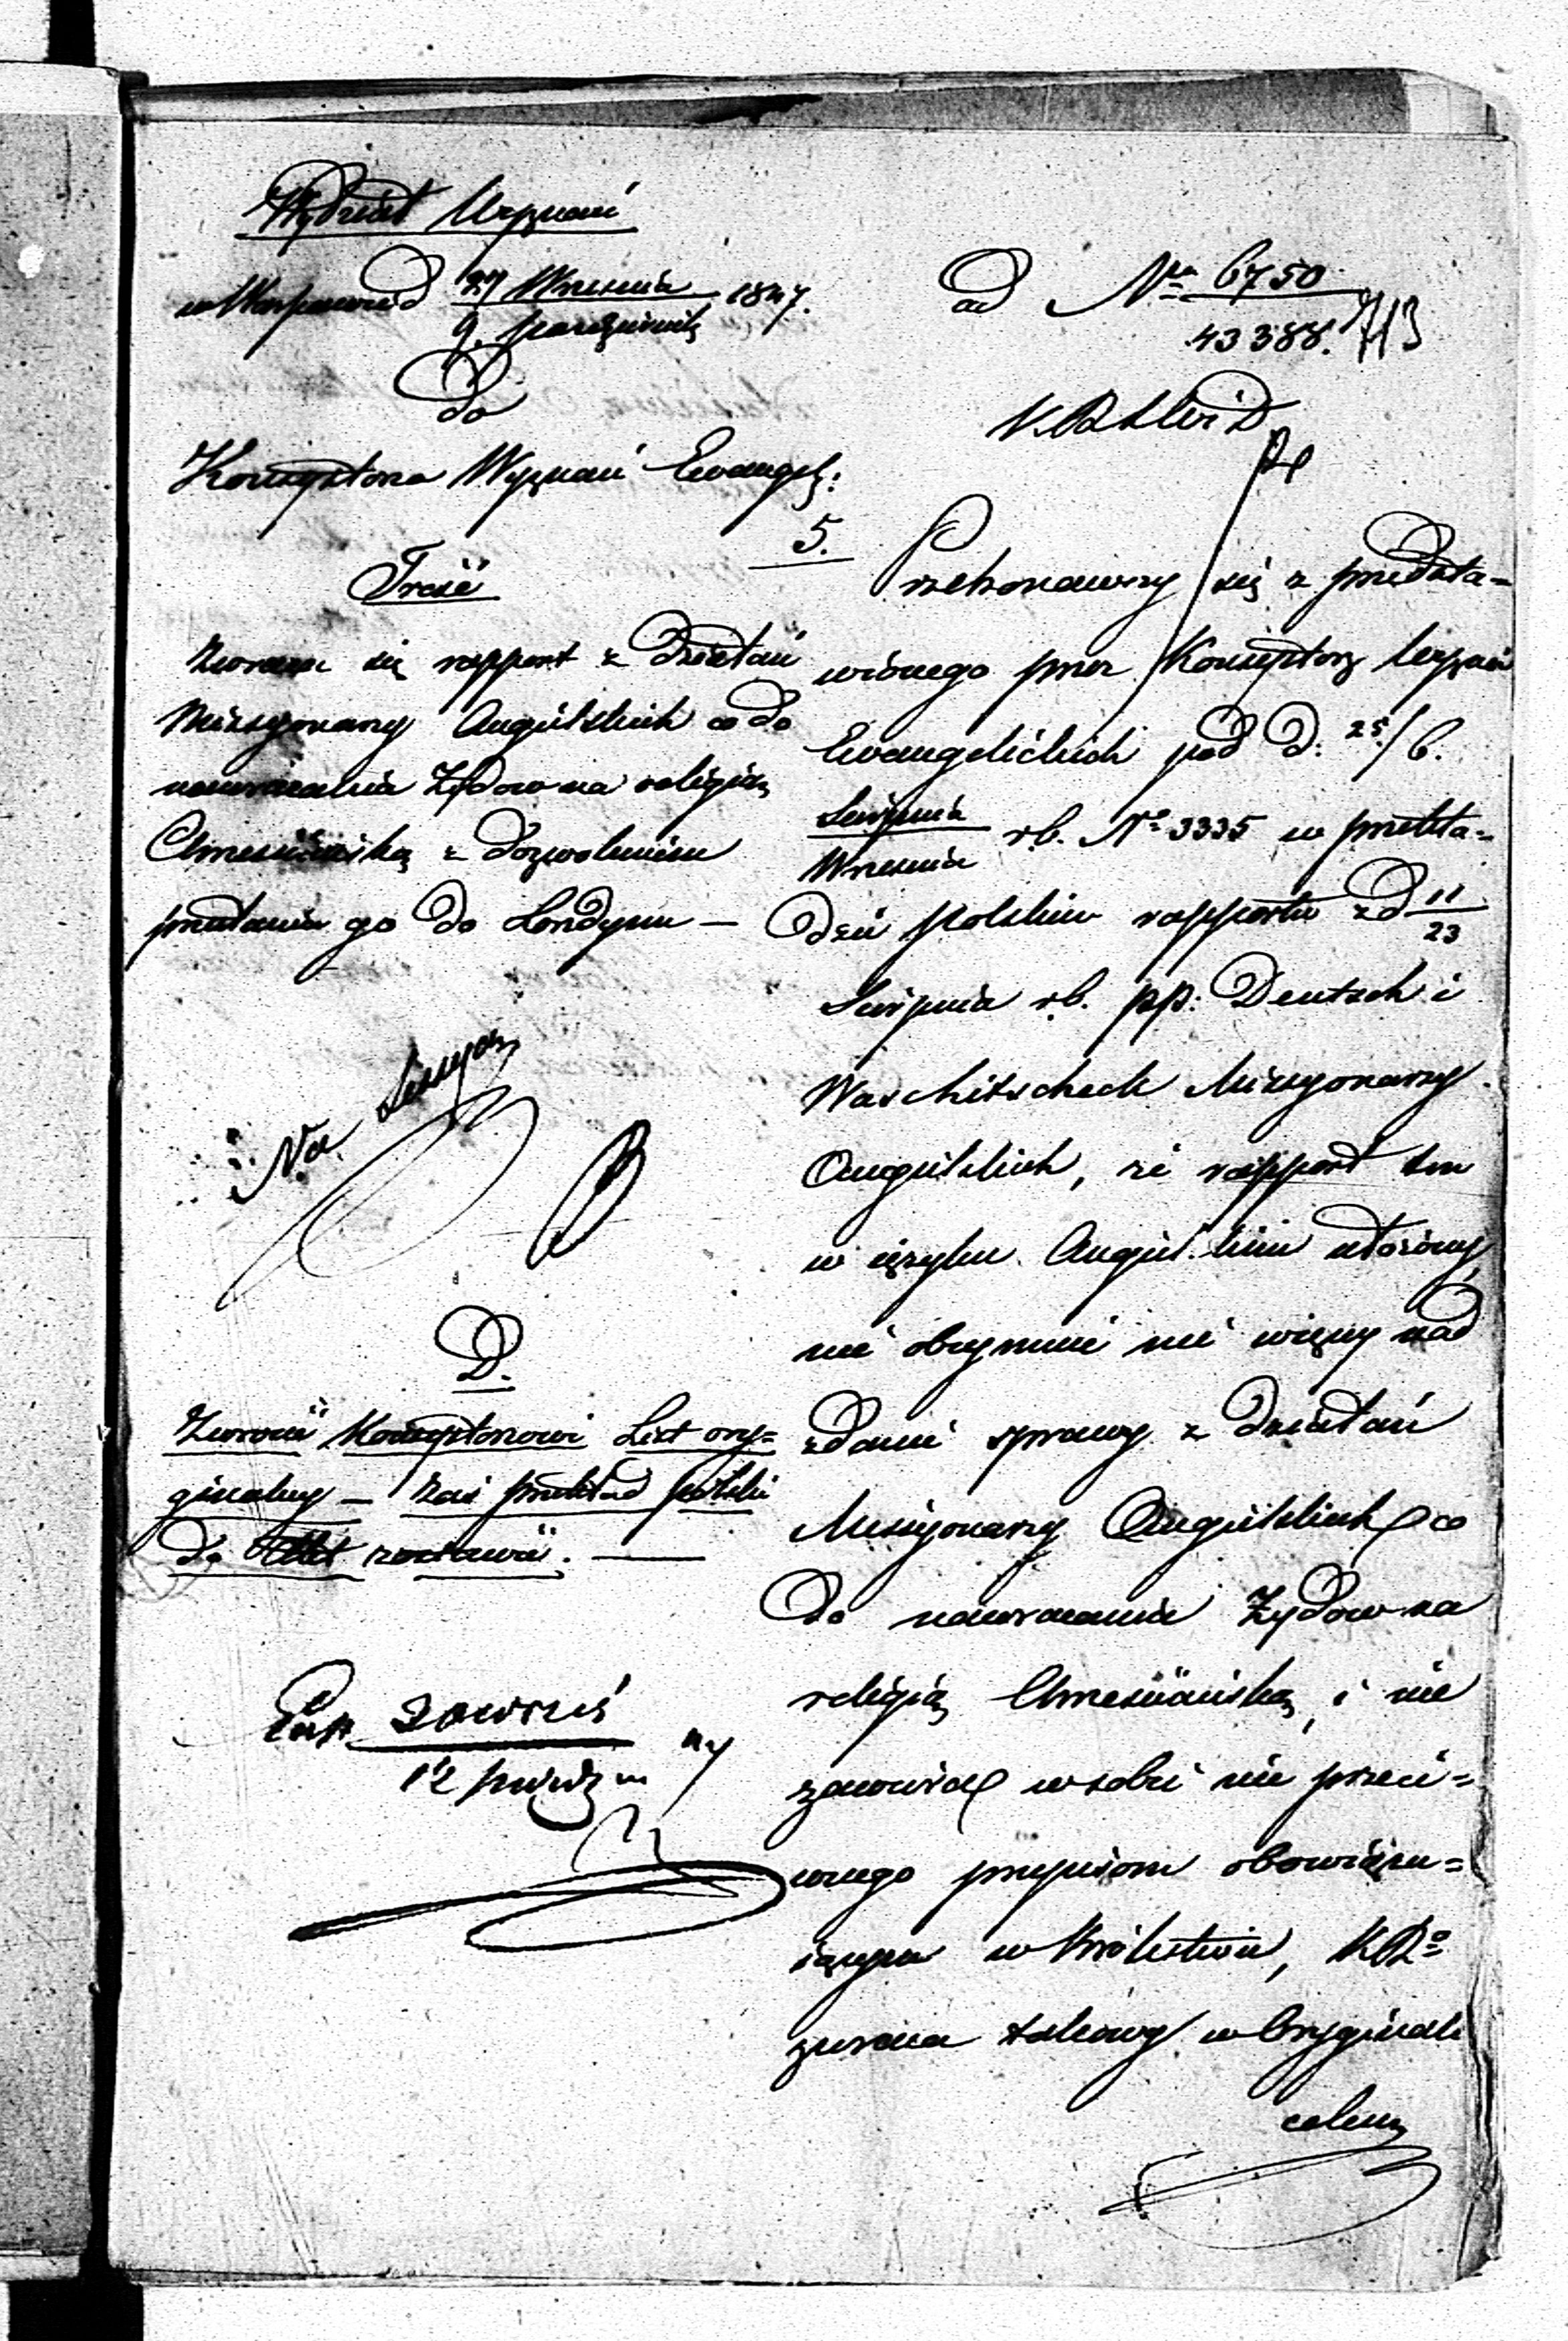 Wydział Wyznań
w Warszawie d 27 Września / 9. Października 1847.
do
Konsystorza Wyznań Ewangel:
Treść
Zwraca się rapport z działań
Missyonarzy Angielskich co do
nawracania Żydow na religią
Chrześciańską z dozwoleniem
przesłania go do Londynu —
Na Sessyą
D.
Zwrócić Konsystorzowi List ory=
ginalny — zaś przekład polski
do Akt zostawić. —
12 paźdz
ad Nru 6750 / 43388.
713
K.R.S.W. i D
5.
Przekonawszy się z przedsta=
wionego przez Konsystorz Wyznań
Ewangelickich pod d: 25/6.
Sierpnia / Września r.b. No 3335 w przekła=
dzie polskim rapportu z d 11/23
Sierpnia r.b. pp: Deutsch i
Waschitscheck Missyonarzy
Angielskich, że rapport ten
w języku Angielskim ułożony
nie obejmuie nic więcey nad
zdanie sprawy z działań
Missyonarzy Angielskich co
do nawracania Żydow na
religią Chrześciańską, i nie
zawiera w sobie nic przeci=
wnego przepisom obowiązu=
iącym w Królestwie, KRo
zwraca takowy w Oryginale
celem